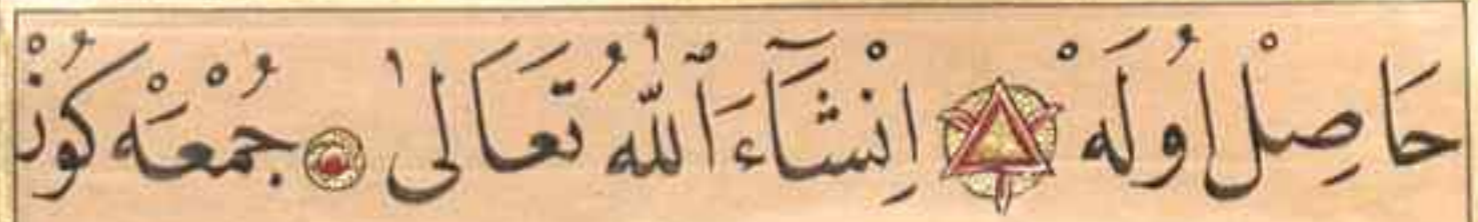 حَاصِلْ اُولَهْ اِنْشَآءَ ٱللّٰهُ تَعَالٰى جُمْعَهْ كُونْ